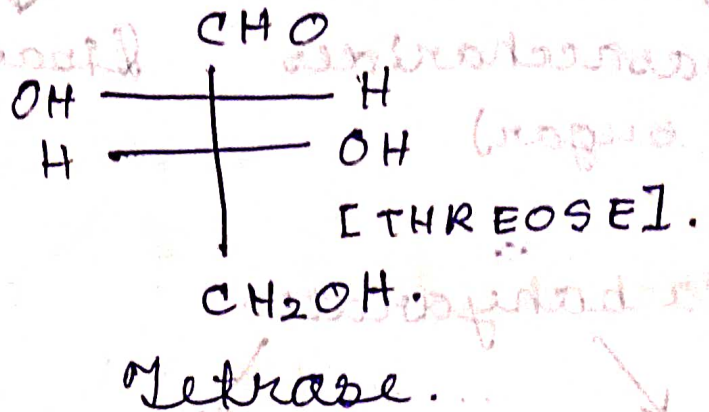 CHO
OH H
H OH
[THREOSE].
CH2OH.
Tetrase.